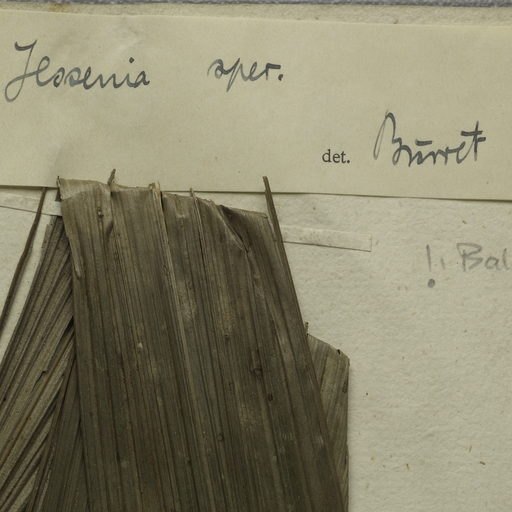 Jessenia sper.
det. Burret
!. Bal